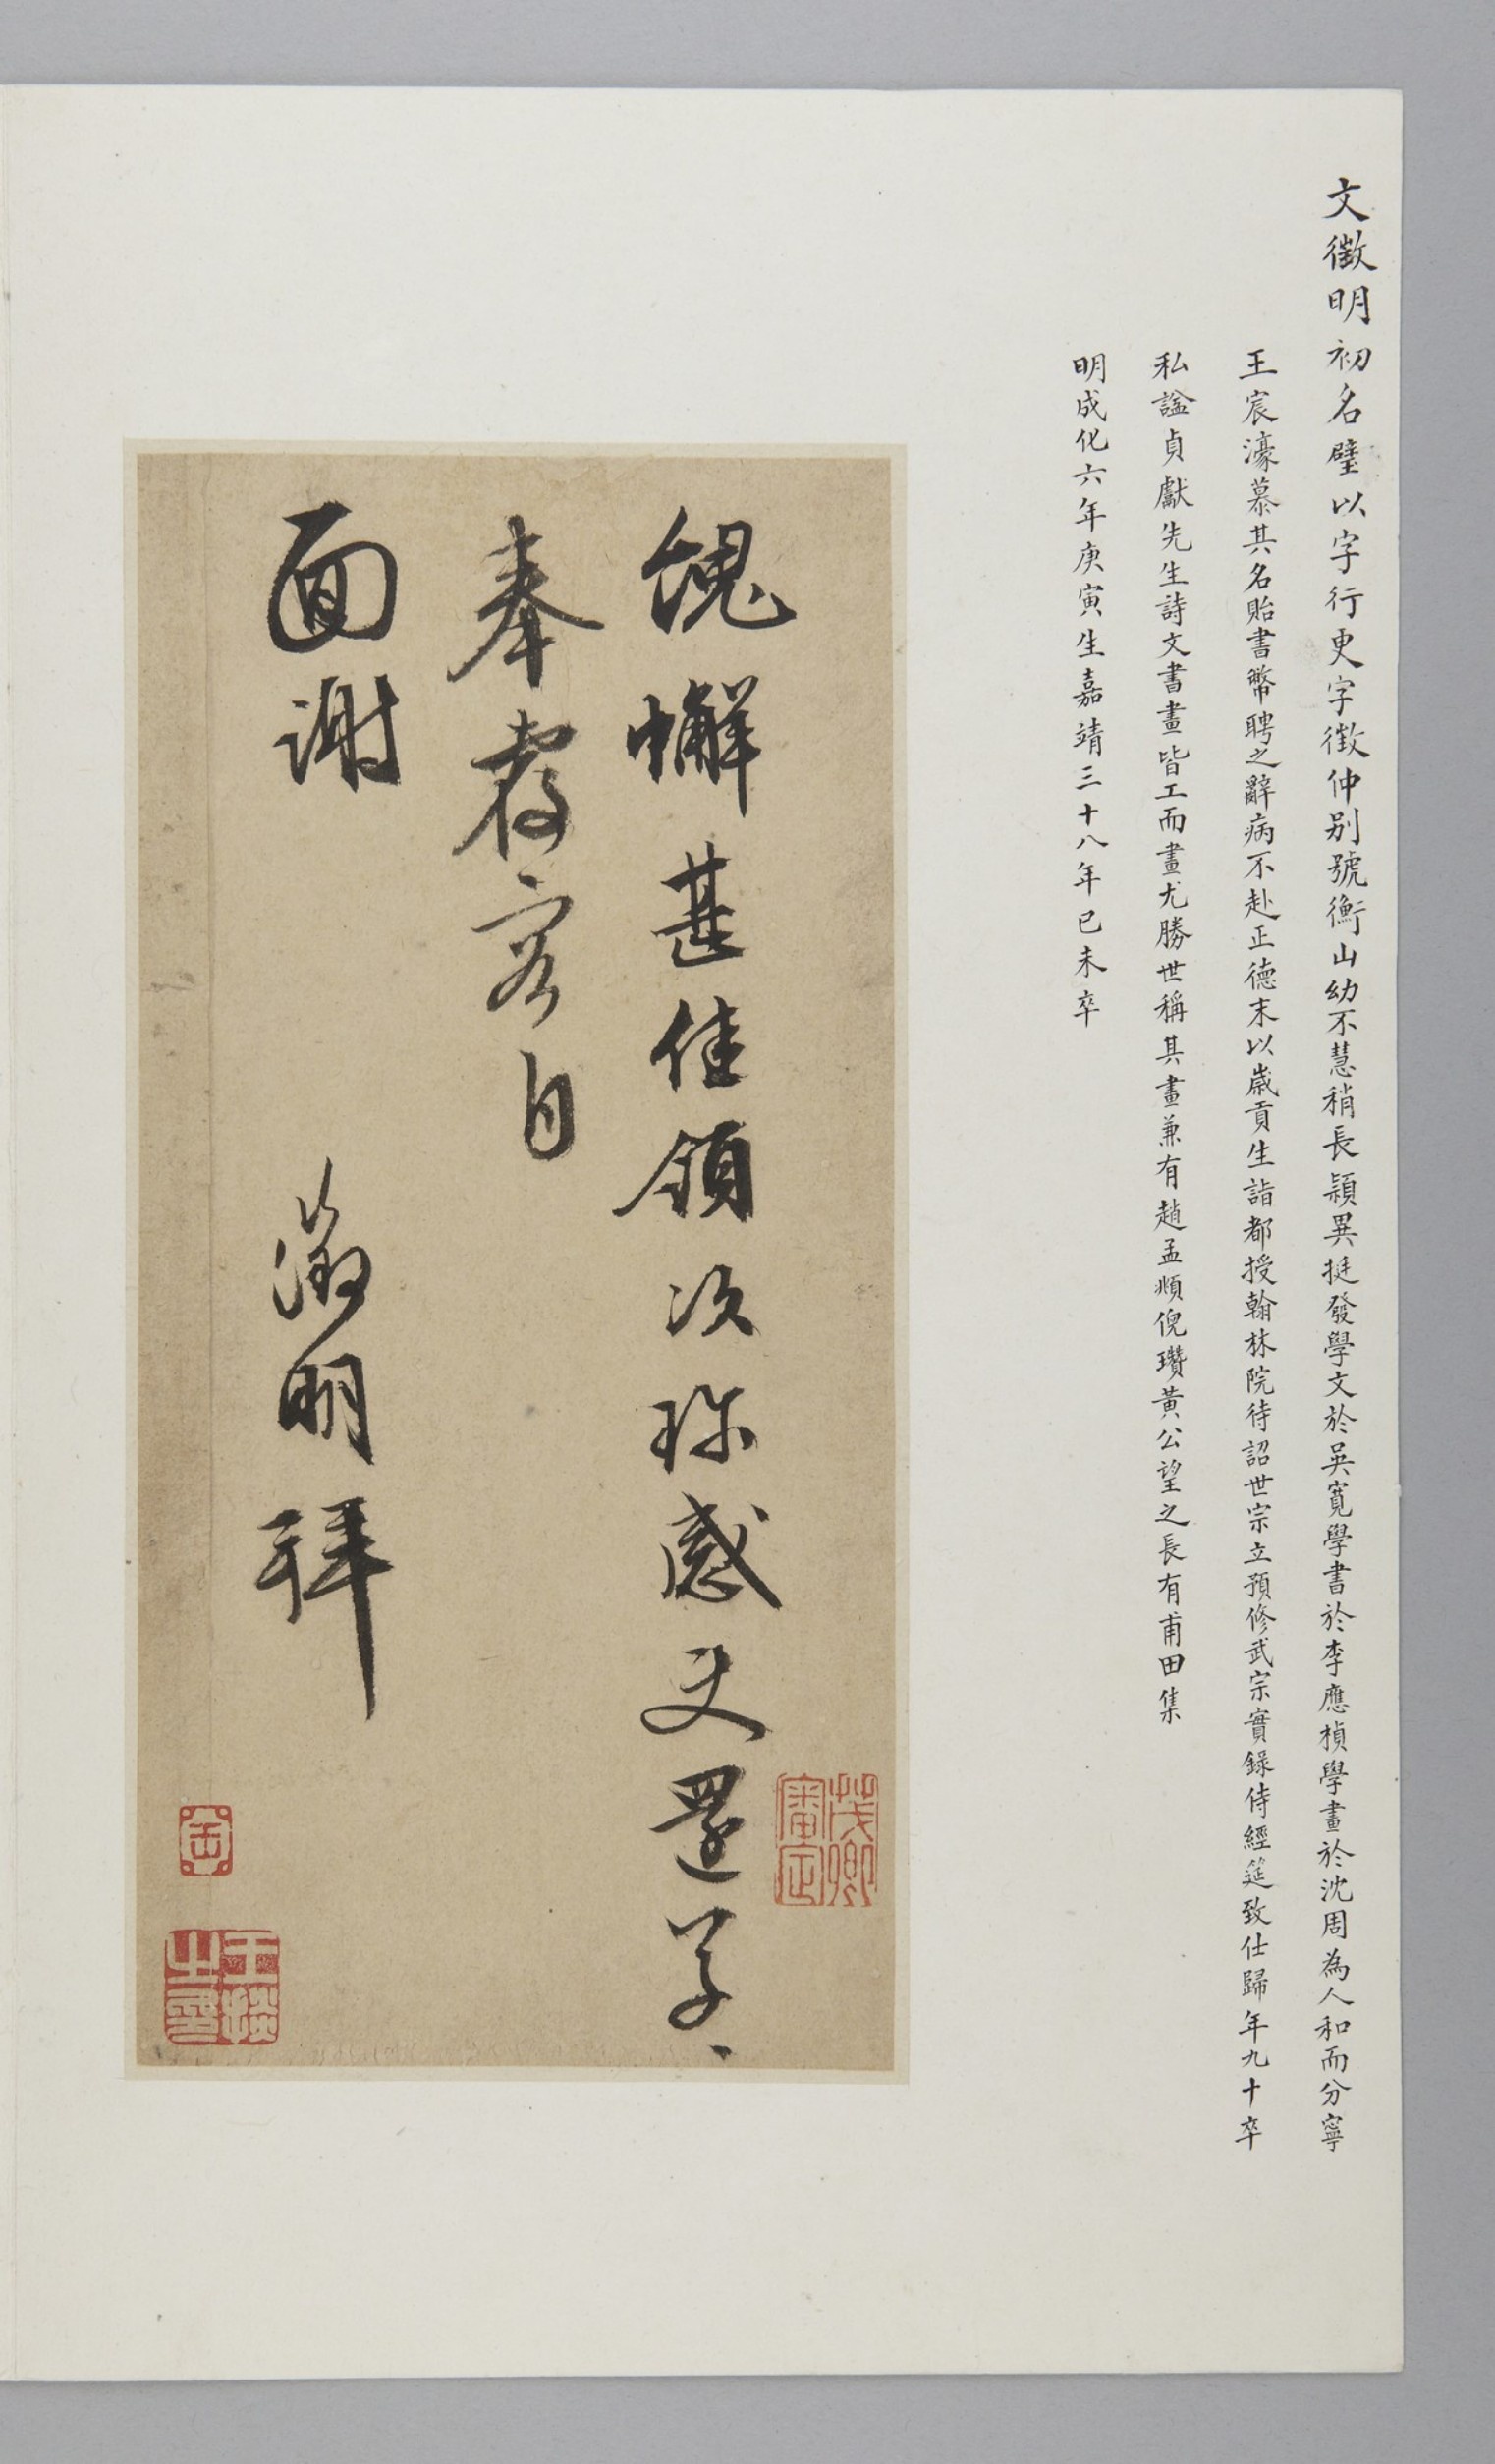 文徵明初名璧以字行更字徵仲別號衡山幼不慧稍長穎異挺發學文於吳寬學書於李應楨學畫於沈周為人和而介寧
王宸濠慕其名貽書幣聘之辭病不赴正德末以歲貢生詣都授翰林院待詔世宗立預修武宗實錄侍經筵致仕歸年九十卒
私諡貞獻先生詩文書畫皆工而畫尤勝世稱其畫兼有趙孟頫倪瓚黃公望之長有甫田集
明成化六年庚寅生嘉靖三十八年己未卒
餽蠏甚佳領次珎感文還草草
奉覆容日
面謝
徵明拜
茂卿審定